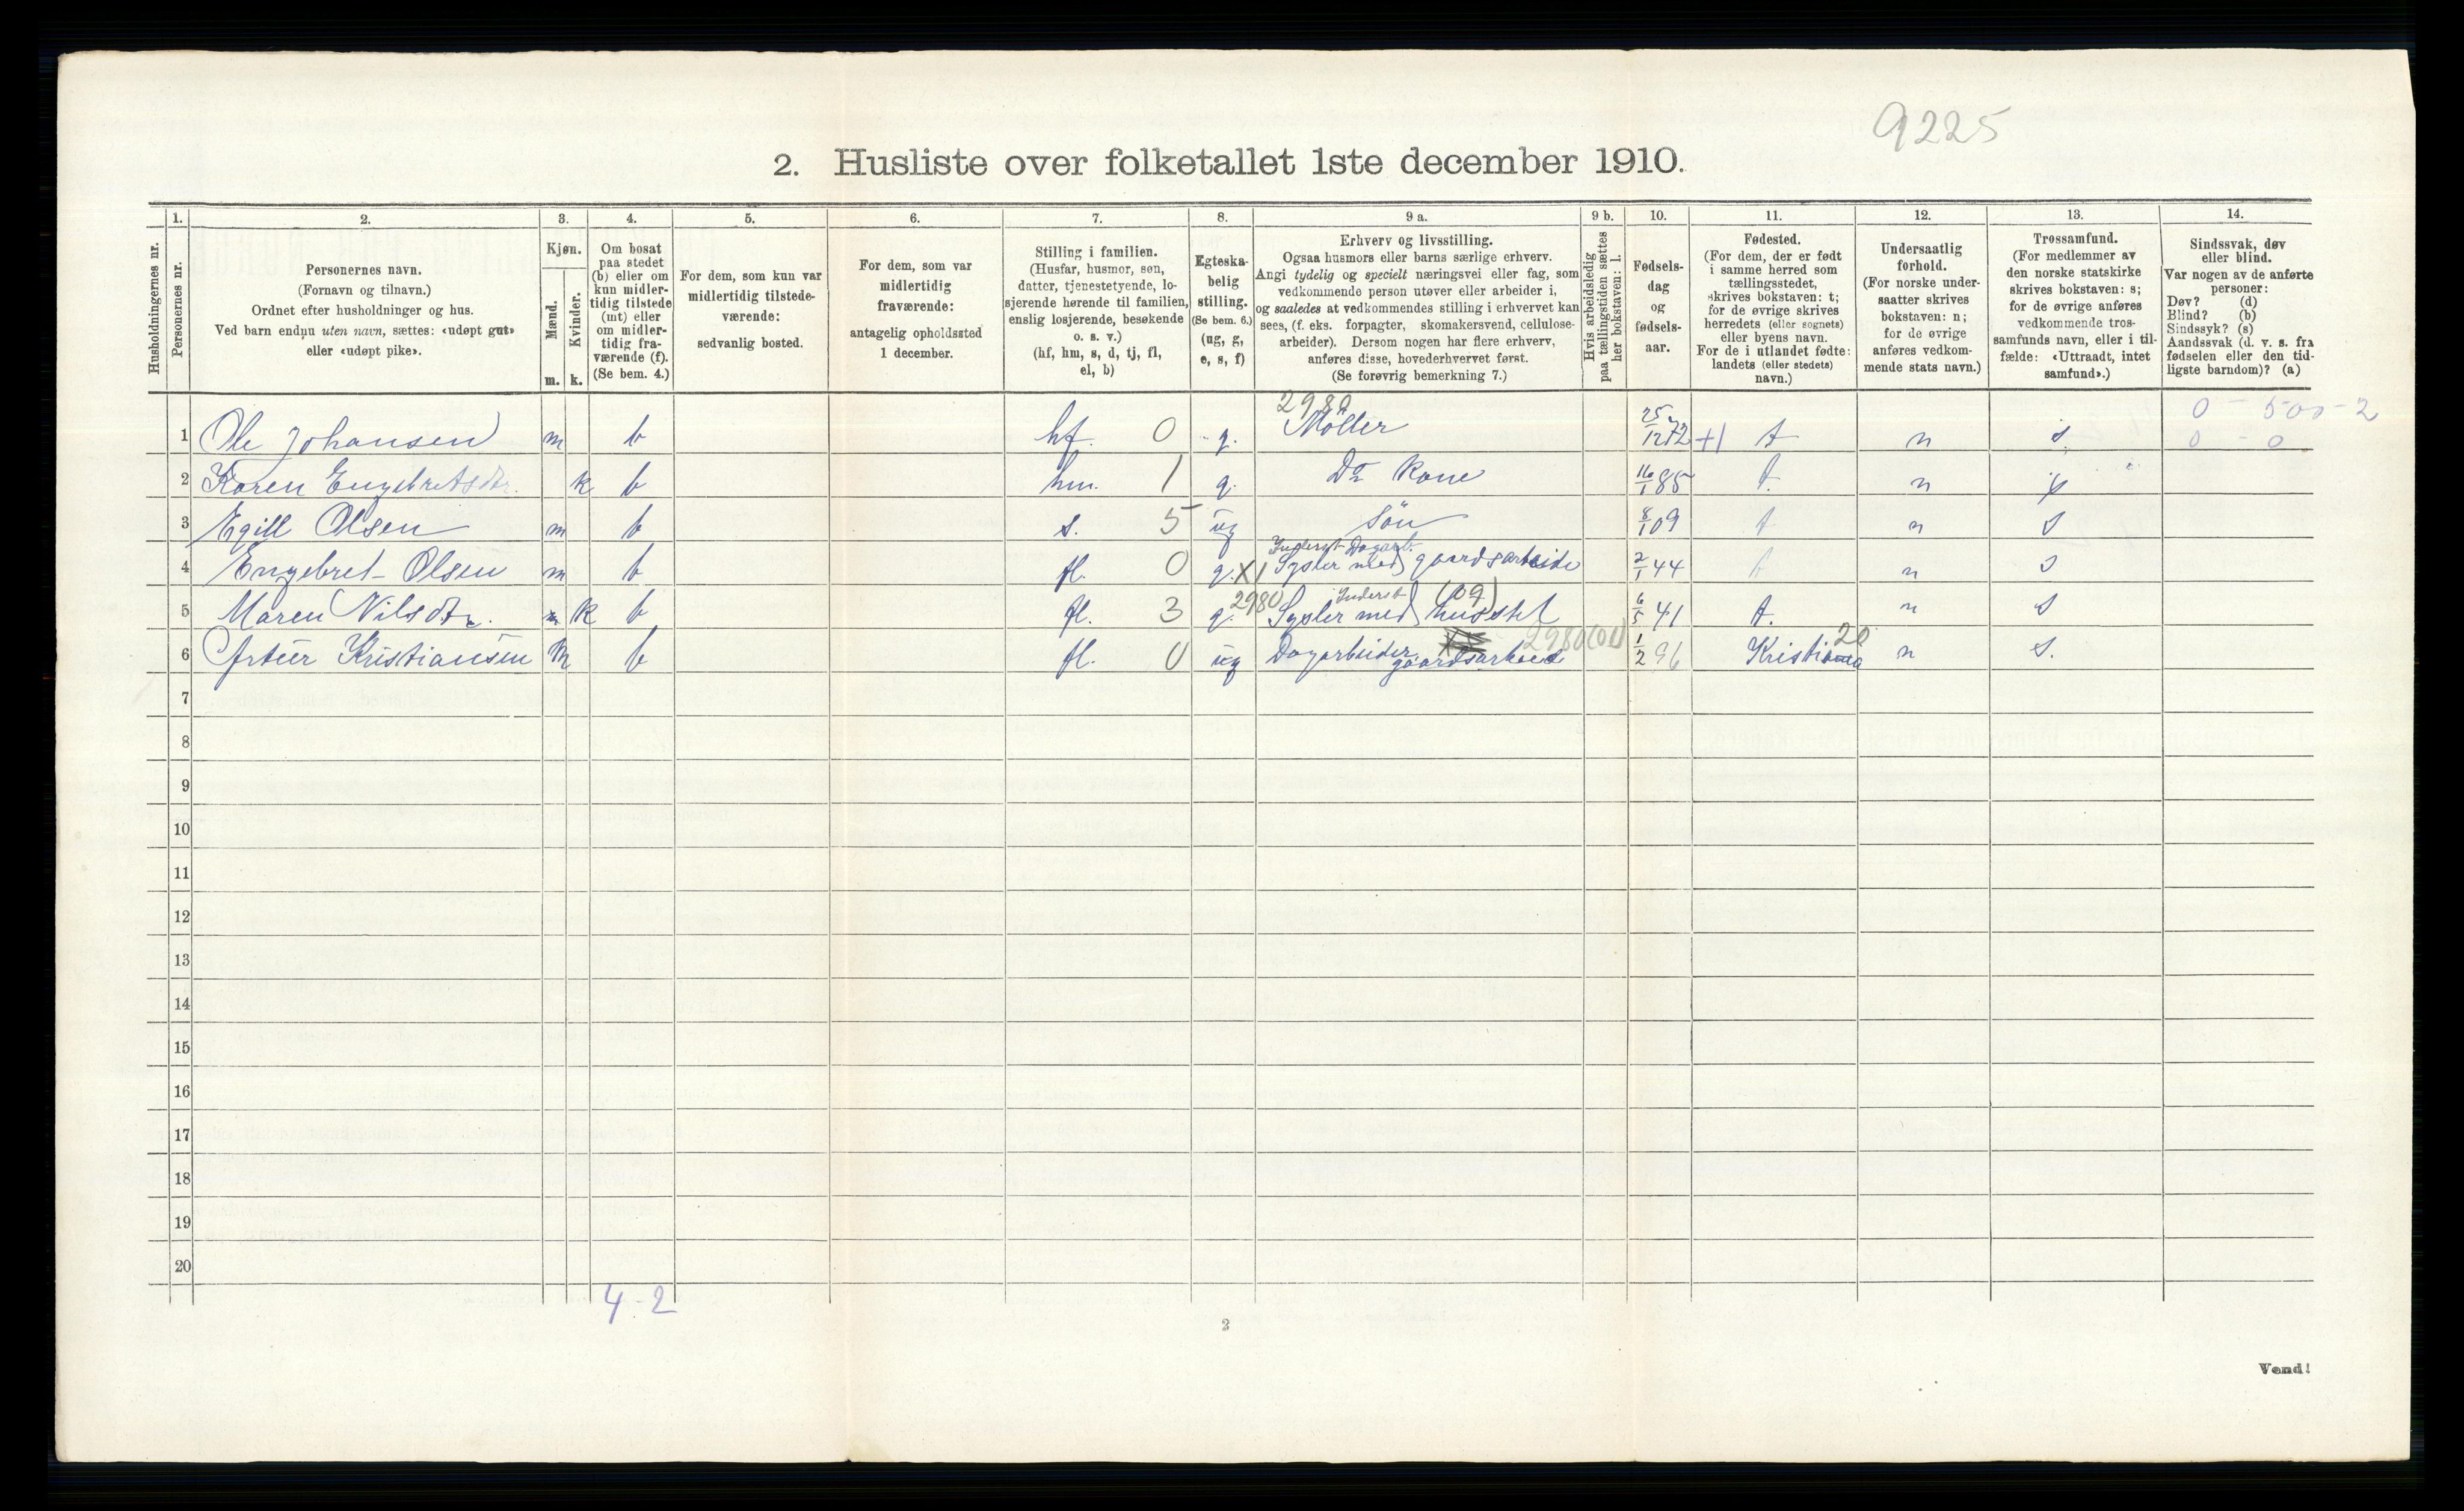 9225
2. Husliste over folketallet 1ste december 1910.
Husholdningernes nr.
1.
Personernes nr.
2.
Personernes navn.
(Fornavn og tilnavn.)
Ordnet efter husholdninger og hus.
Ved barn endnu uten navn, sættes: «udøpt gut»
eller «udøpt pike».
3.
Kjøn.
Mænd.
m.
Kvinder.
k.
4.
Om bosat
paa stedet
(b) eller om
kun midler-
tidig tilstede
(mt) eller
om midler-
tidig fra-
værende (f).
(Se bem. 4.)
5.
For dem, som kun var
midlertidig tilstede-
værende:
sedvanlig bosted.
6.
For dem, som var
midlertidig
fraværende:
antagelig opholdssted
1 december.
7.
Stilling i familien.
(Husfar, husmor, søn,
datter, tjenestetyende, lo-
sjerende hørende til familien,
enslig losjerende, besøkende
o. s. v.)
(hf, hm, s, d, tj, fl,
el, b)
8.
Egteska-
belig
stilling.
(Se bem. 6.)
(ug, g,
e, s, f)
9 a.
Erhverv og livsstilling.
Ogsaa husmors eller barns særlige erhverv.
Angi tydelig og specielt næringsvei eller fag, som
vedkommende person utøver eller arbeider i,
og saaledes at vedkommendes stilling i erhvervet kan
sees, (f. eks. forpagter, skomakersvend, cellulose-
arbeider). Dersom nogen har flere erhverv,
anføres disse, hovederhvervet først.
(Se forøvrig bemerkning 7.)
9 b.
Hvis arbeidsledig
paa tællingstiden sættes
her bokstaven: l.
10.
Fødsels-
dag
og
fødsels-
aar.
11.
Fødested.
(For dem, der er født
i samme herred som
tællingsstedet,
skrives bokstaven: t;
for de øvrige skrives
herredets (eller sognets)
eller byens navn.
For de i utlandet fødte:
landets (eller stedets)
navn.)
12.
Undersaatlig
forhold.
(For norske under-
saatter skrives
bokstaven: n;
for de øvrige
anføres vedkom-
mende stats navn.)
13.
Trossamfund.
(For medlemmer av
den norske statskirke
skrives bokstaven: s;
for de øvrige anføres
vedkommende tros-
samfunds navn, eller i til-
fælde: «Uttraadt, intet
samfund».)
14.
Sindssvak, døv
eller blind.
Var nogen av de anførte
personer:
Døv? (d)
Blind? (b)
Sindssyk? (s)
Aandssvak (d. v. s. fra
fødselen eller den tid-
ligste barndom)? (a)
2980 0 - 500 - 2
1 Ole Johansen m b hf. 0 g. Möller 25/12 72 +1 t n s. 0 - 0
2 Karen Engebretsdtr. k b hm. 1 g. Do Kone 16/1 85 t. n s
3 Egill Olsen m b s. 5 ug Sön 8/1 09 t n s
Inderst Dagarb.
4 Engebret Olsen m b fl. 0 g. X1 Sysler med gaardsarbeide 2/1 44 t n s
2980 Inderst (09)
5 Maren Nilsdtr. k b fl. 3 g. Sysler med husstel 6/5 41 t. n s
2980(01) 20
6 Artur Kristiansen m b fl. 0 ug Dagarbeider gaardsarbeid 1/2 96 Kristiania n s.
7
8
9
10
11
12
13
14
15
16
17
18
19
20
4 - 2
2
Vend!